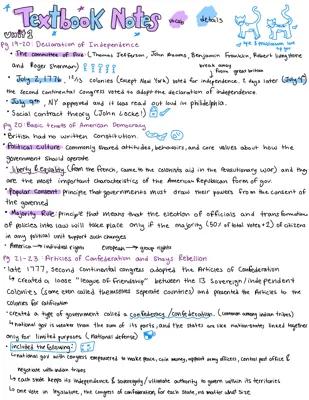 Textbook Notes
vocab
details
Unit 1
pg 19-20: Declaration of Independence
• The committee of five (Thomas Jefferson, John Adams, Benjamin Franklin, Robert Livingstone
and Roger Sherman)
break away
from great britain
• July 2, 1776, 12/13 colonies (except New York) voted for independence. 2 days later (July 4th)
the second continental congress voted to adopt the declaration of independence.
• July 9th, NY approved and it was read out loud in philadelphia.
• Social contract theory (John Locke!)
pg 20: Basic tenets of American Democracy
• British had no written constitution.
• Political culture: commonly shared attitudes, behaviors, and core values about how the
government should operate
• liberty & equality (from the french, came to the colonists aid in the revolutionary war) and they
are the most important characteristics of the American Republican form of gov.
• Popular consent: principle that governments must draw their powers from the consent of
the governed
• Majority Rule: principle that means that the election of officials and transformation
of policies into law will take place only if the majority (50% of total votes +2) of citizens
in any political unit support such changes
• America → individual rights European → group rights
pg 21-23: Articles of Confederation and Shays Rebellion
• late 1777, second continental congress adopted the Articles of Confederation
↳ created a loose "league of friendship" between the 13 sovereign/independent
colonies, (some even called themselves separate countries) and presented the Articles to the
colonies for ratification
• created a type of government called a confederacy/confederation. (common among indian tribes)
↳ national gov is weaker than the sum of its parts, and the states are like nation-states linked together
only for limited purposes (national defense)
• included the following:
↳ national gov with congress empowered to make peace, coin money, appoint army officers, control post office &
negotiate with indian tribes
↳ each state keeps its independence & sovereignty/ultimate authority to govern within its territories
↳ one vote in legislature, the congress of confederation, for each state, no matter what size